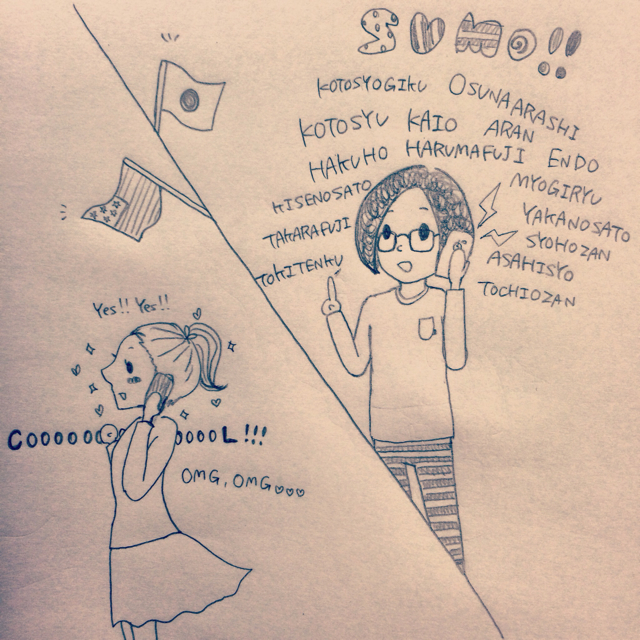 SUMO!!
KOTOSYOGIKU OSUNAARASHI
KOTOSYU KAIO ARAN
HAKUHO HARUMAFUJI ENDO
KISENOSATO MYOGIRYU
TAKARAFUJI YAKANOSATO
TOKITENKU SYOHOZAN
ASAHISYO
TOCHIOZAN
Yes!! Yes!!
COOOOOO OOOOL!!!
OMG, OMG♡♡♡